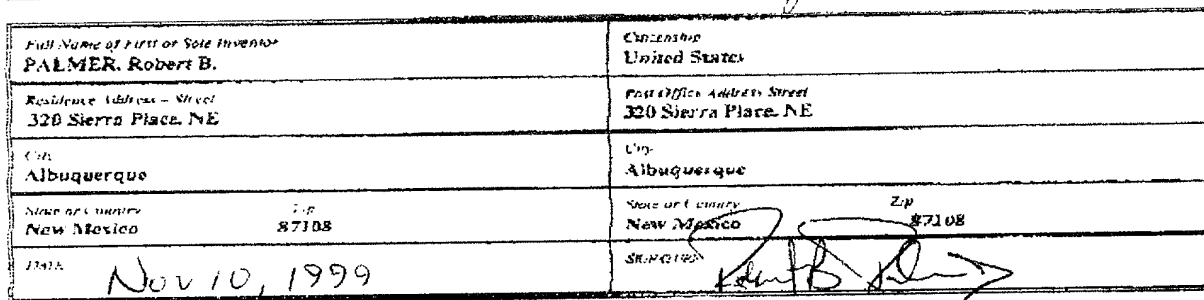 Full Name of First or Sole Inventor
PALMER, Robert B.
Citizenship
United States
Residence Address – Street
320 Sierra Place, NE
Post Office Address Street
320 Sierra Place, NE
City
Albuquerque
City
Albuquerque
State or Country Zip
New Mexico 87108
State or Country Zip
New Mexico 87108
DATE
Nov 10, 1999
SIGNATURE
Robert B Palmer